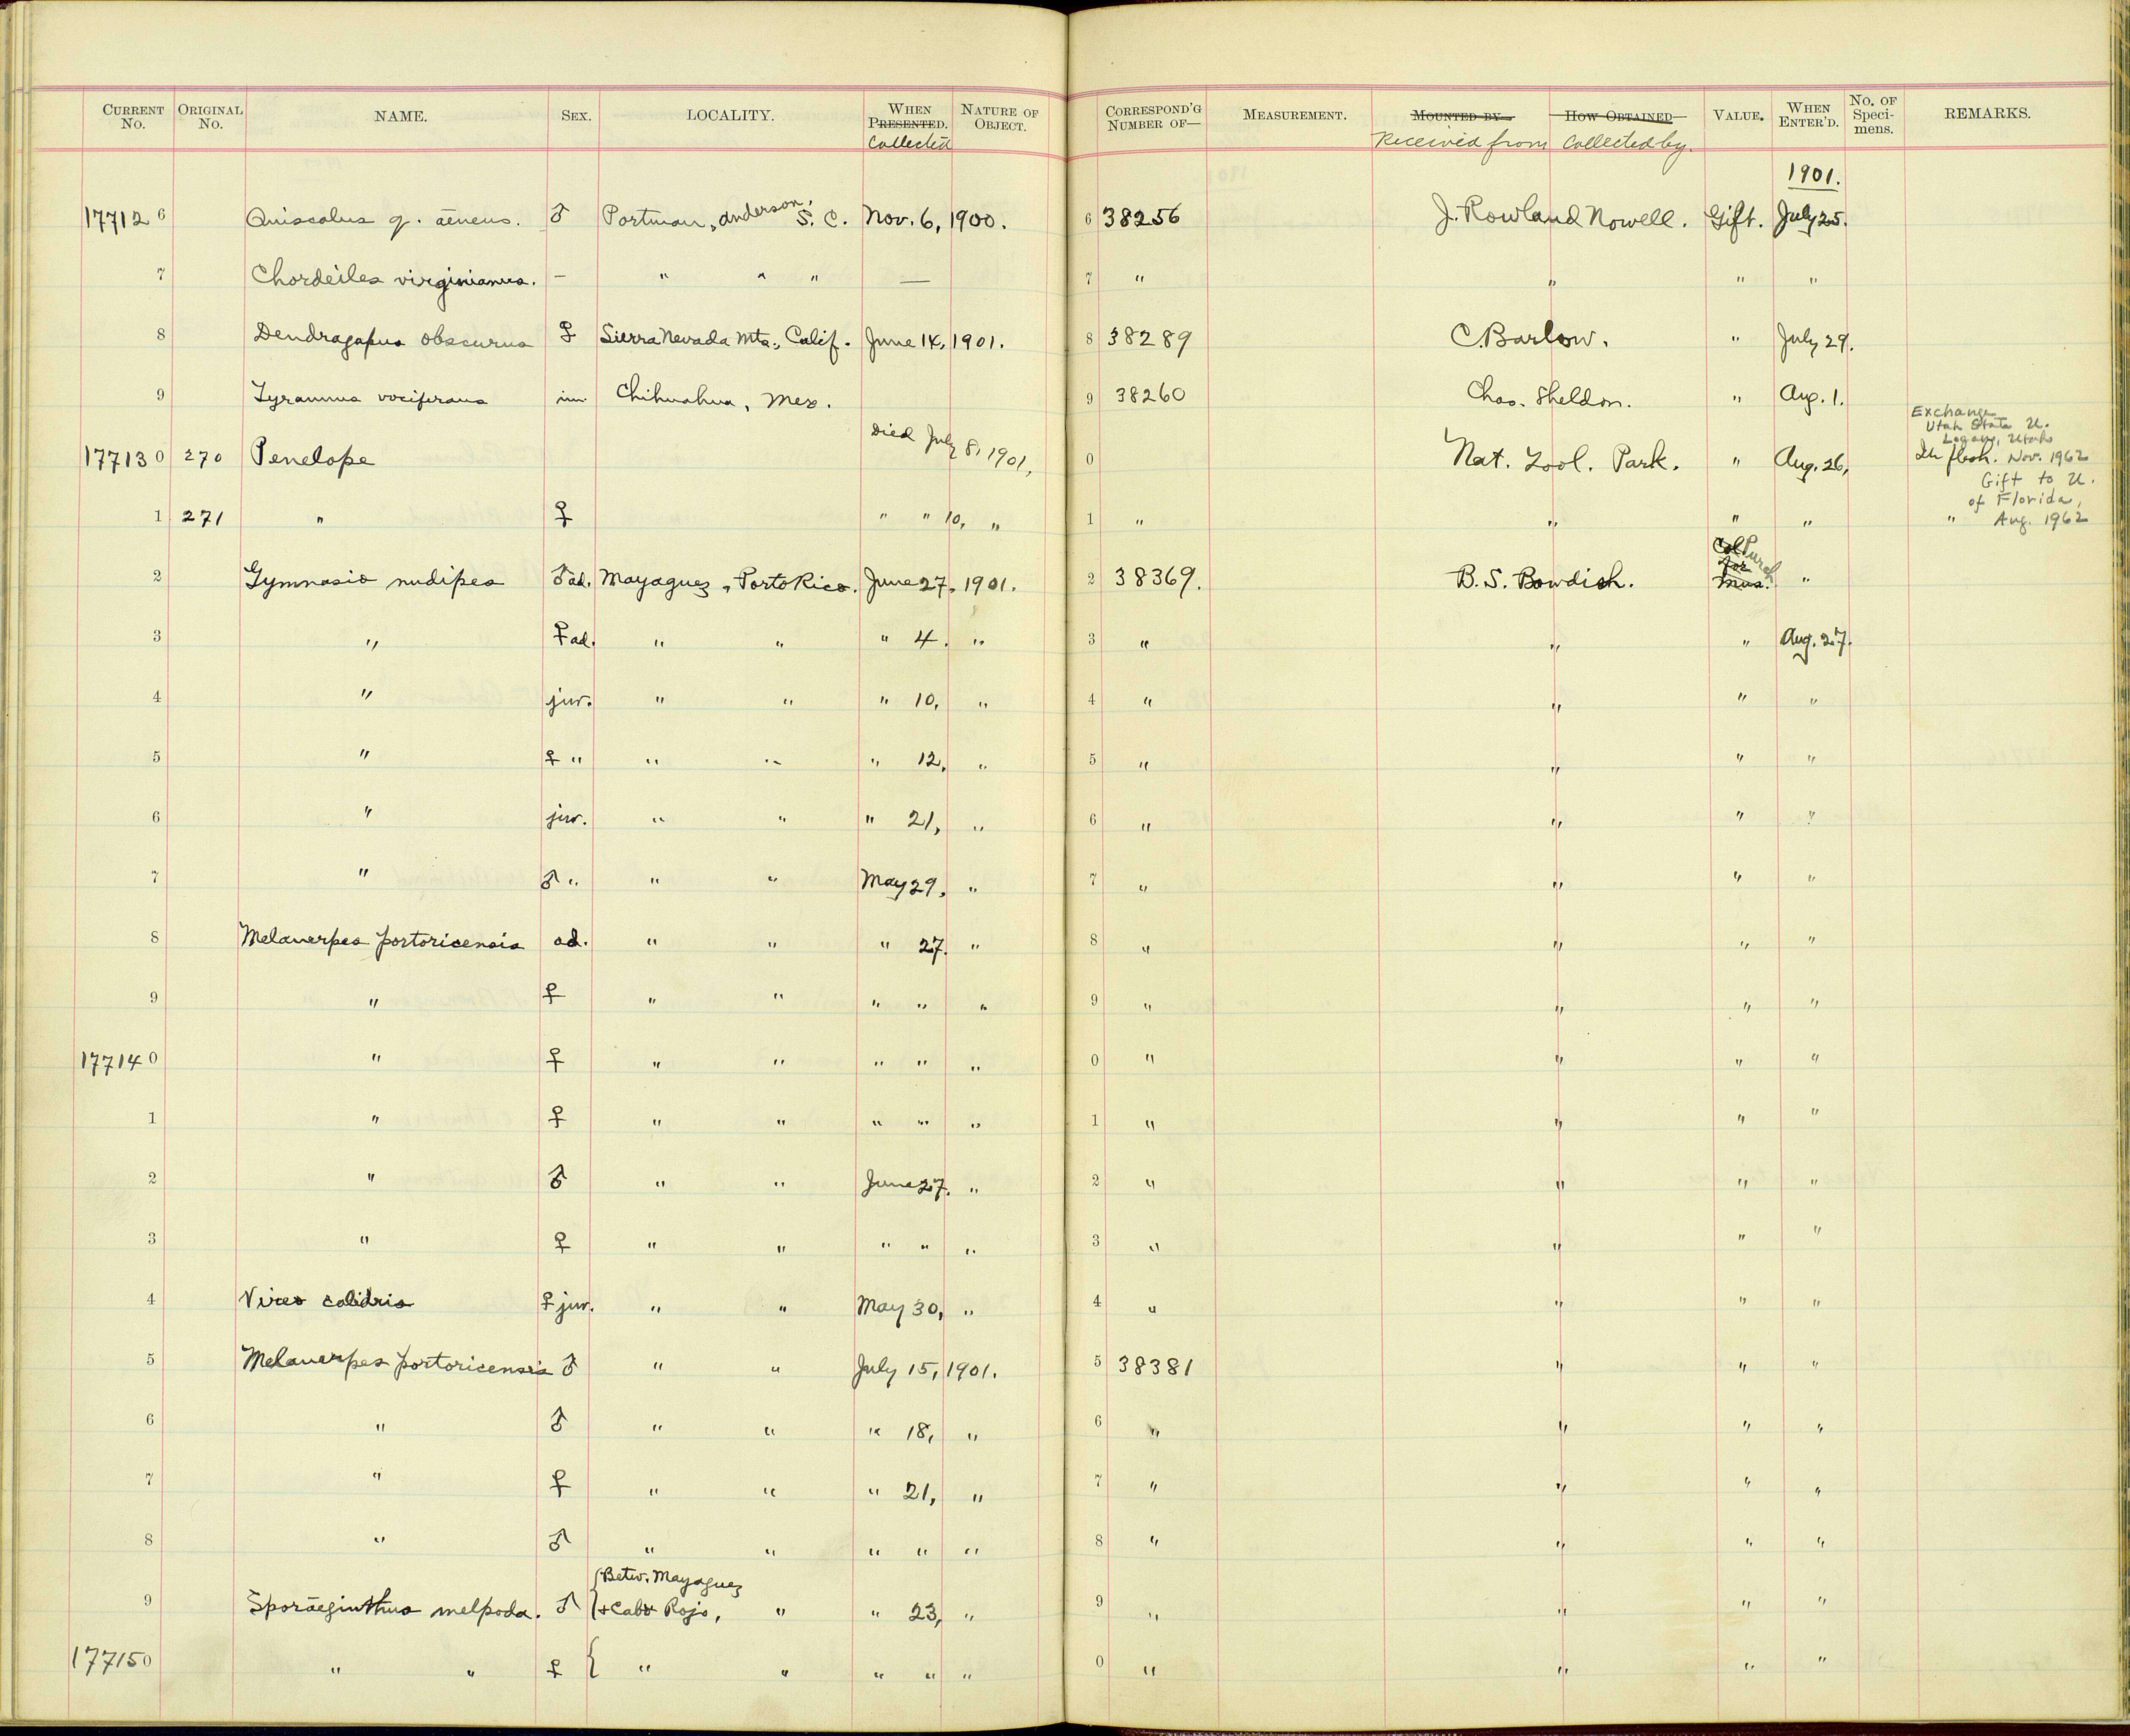 CURRENT No. ORIGINAL No. NAME. SEX. LOCALITY. WHEN PRESENTED. Collected NATURE OF OBJECT. CORRESPOND'G NUMBER OF— MEASUREMENT. MOUNTED BY— Received from HOW OBTAINED— Collected by. VALUE. WHEN ENTER'D. No. OF Speci-mens. REMARKS.
1901.
177126 Quiscalus q. aëneus. ♂ Portman, Anderson, S. C. Nov. 6, 1900. 6 38256 J. Rowland Nowell. Gift. July 25.
7 Chordeiles virginianus. — " " " — 7 " " " "
8 Dendragapus obscurus ♀ Sierra Nevada Mts., Calif. June 14, 1901. 8 38289 C. Barlow. " July 29.
9 Tyrannus vociferans im. Chihuahua, Mex. 9 38260 Chas. Sheldon. " Aug. 1.
177130 270 Penelope Died July 8, 1901, 0 Nat. Zool. Park. " Aug. 26, Exchange Utah State U. Logan, Utah In flesh. Nov. 1962
1 271 " ♀ " " 10, " 1 " " " " Gift to U. of Florida, " Aug. 1962
2 Gymnasio nudipes ♂ ad. Mayaguez, Porto Rico. June 27, 1901. 2 38369. B. S. Bowdish. Col for Mus. Purch "
3 " ♀ ad. " " " 4. " 3 " " " Aug. 27.
4 " juv. " " " 10, " 4 " " " "
5 " ♀ " " " " 12, " 5 " " " "
6 " juv. " " " 21, " 6 " " " "
7 " ♂ " " " May 29, " 7 " " " "
8 Melanerpes portoricensis ad. " " " 27. " 8 " " " "
9 " ♀ " " " " " 9 " " " "
177140 " ♀ " " " " " 0 " " " "
1 " ♀ " " " " " 1 " " " "
2 " ♂ " " June 27. " 2 " " " "
3 " ♀ " " " " " 3 " " " "
4 Vireo calidris ♀ juv. " " May 30, " 4 " " " "
5 Melanerpes portoricensis ♂ " " July 15, 1901. 5 38381 " " "
6 " ♂ " " " 18, " 6 " " " "
7 " ♀ " " " 21, " 7 " " " "
8 " ♂ " " " " " 8 " " " "
9 Sporæginthus melpoda. ♂ { Betw. Mayaguez & Cabo Rojo, " " 23, " 9 " " " "
177150 " " ♀ { " " " " " 0 " " " "